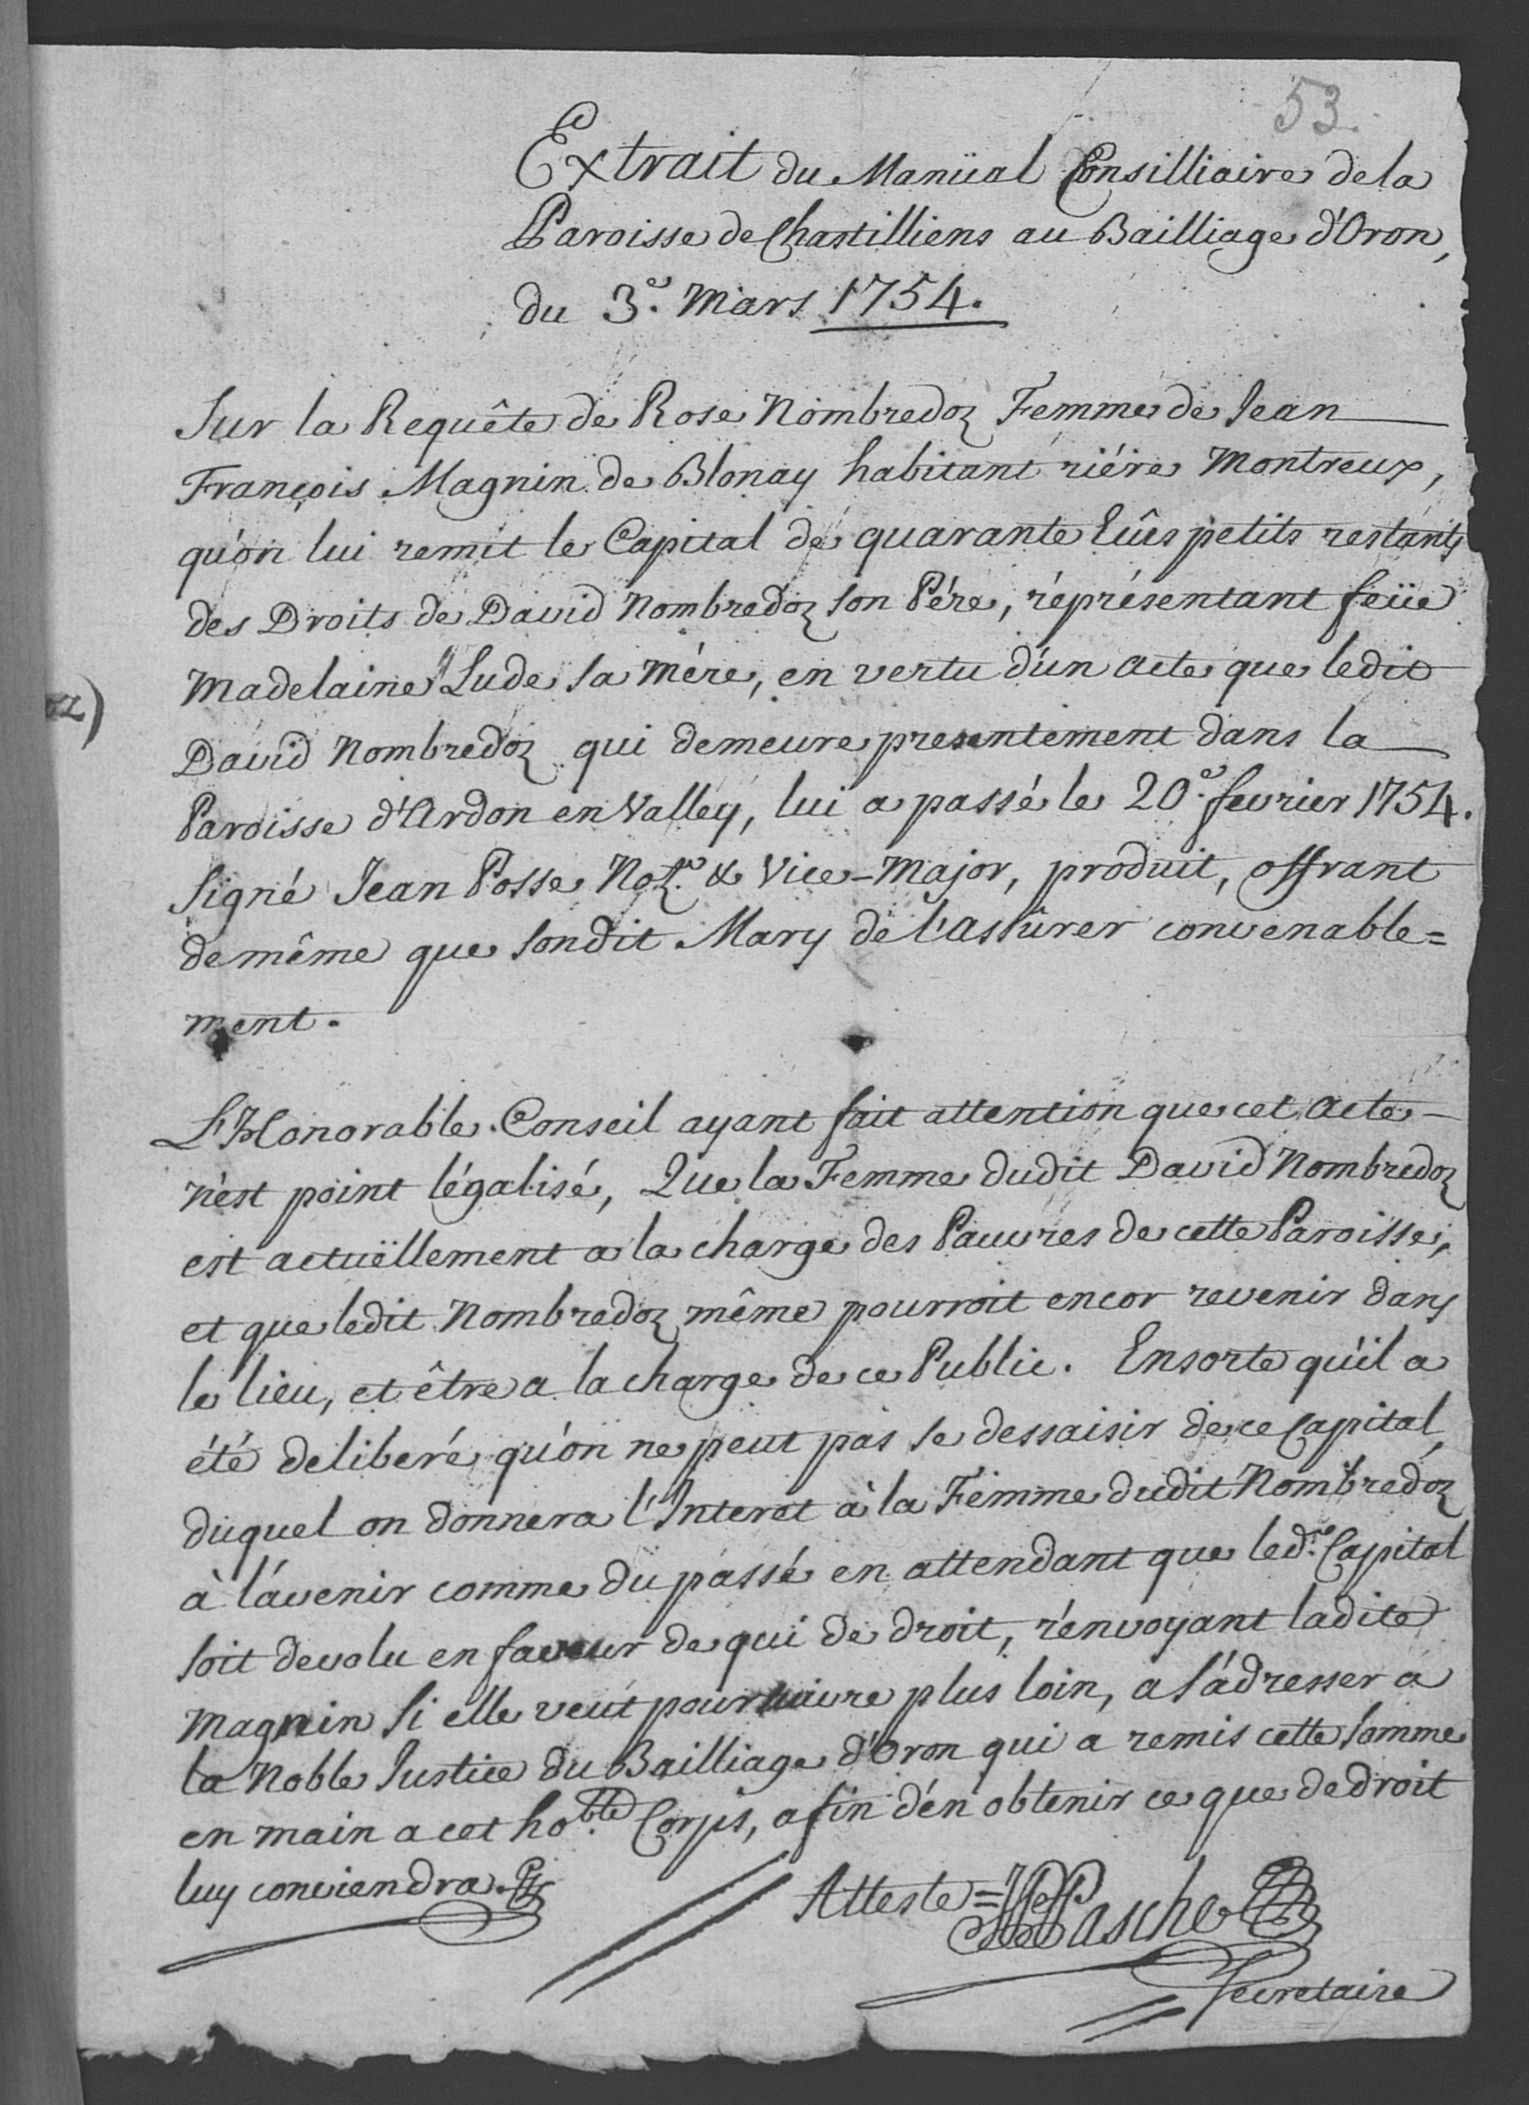 53.
Extrait du Manüal Consilliaire de la
Paroisse de Chastilliens au Bailliage d'Oron,
du 3.e Mars 1754.
Sur la Requête de Rose Nombredoz Femme de Jean
François Magnin de Blonay habitant riére Montreux,
qu'on lui remit le Capital de quarante Eûs petits restants
des Droits de David Nombredoz son Pére, réprésentant feüe
Madelaine Lude sa Mére, en vertu d'un acte que ledit
David Nombredoz qui demeure presentement dans la
Paroisse d'Ardon en Valley, lui a passé le 20.e fevrier 1754.
Signé Jean Posse Not.re & Vice-Major, produit, offrant
de même que sondit Mary de l'assûrer convenable=
ment.
L'Honorable Conseil ayant fait attention que cet acte
n'est point légalisé, Que la Femme dudit David Nombredoz
est actuëllement a la charge des Pauvres de cette Paroisse,
et que ledit Nombredoz même pourroit encor revenir dans
le lieu, et être a la charge de ce Public. Ensorte qu'il a
été deliberé qu'on ne peut pas se dessaisir de ce Capital,
duquel on donnera l'Interet à la Femme dudit Nombredoz
à l'avenir comme du passé en attendant que led.t Capital
soit devolu en faveur de qui de droit, rénvoyant ladite
Magnin si elle veut poursuivre plus loin, a s'adresser a
la Noble Justice du Bailliage d'Oron qui a remis cette somme
en main a cet ho.ble Corps, afin d'en obtenir ce que de droit
luy conviendra.
Atteste = Pasche
Secretaire
oz)